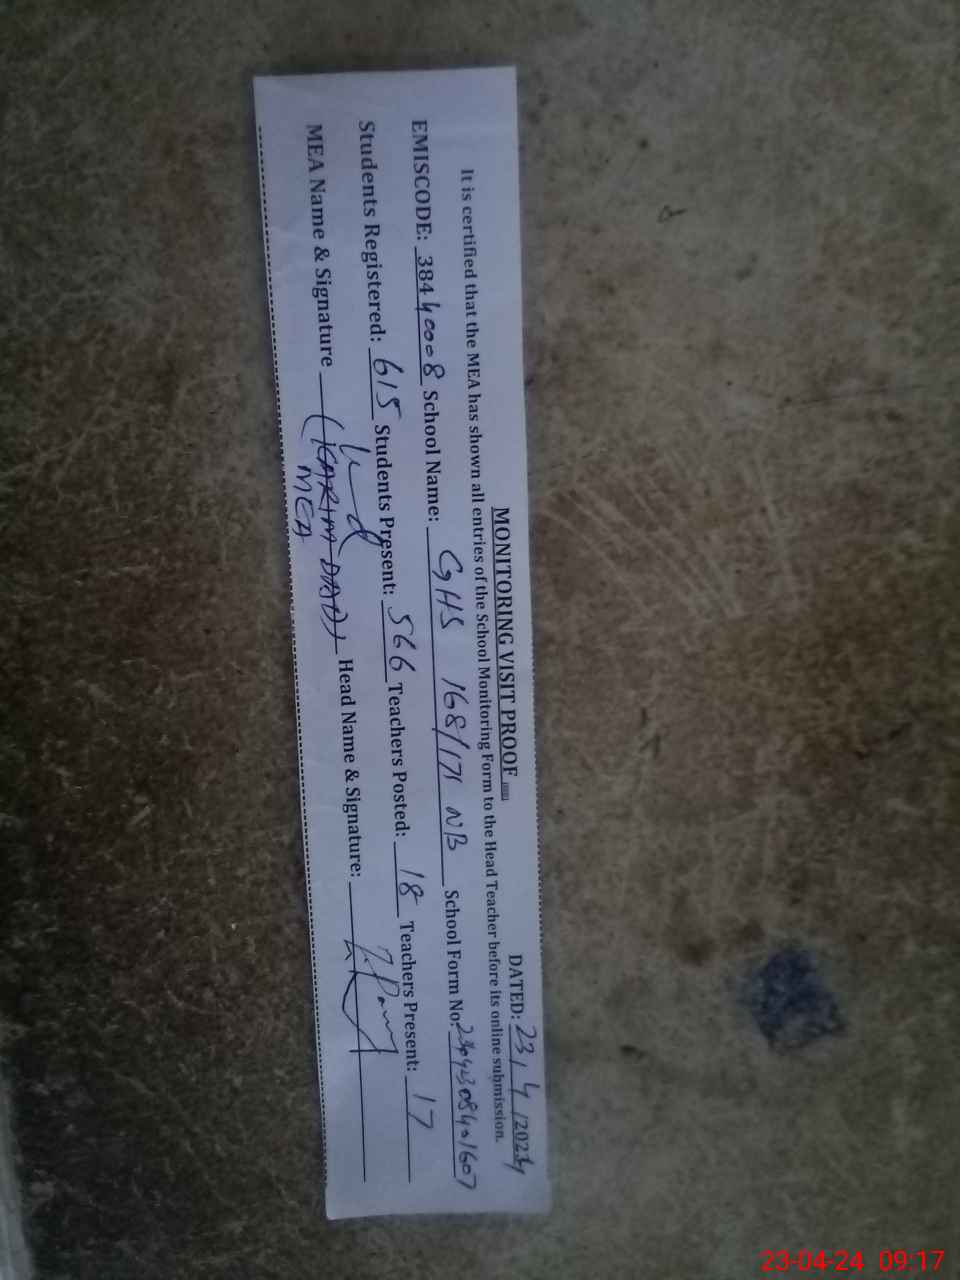 MONITORING VISIT PROOF
DATED: 23/4/2024
It is certified that the MEA has shown all entries of the School Monitoring Form to the Head Teacher before its online submission.
EMISCODE: 38440008 School Name: GHS 168/171 NB School Form No:
Students Registered: 615 Students Present: 566 Teachers Posted: 18 Teachers Present: 17
MEA Name & Signature (KARIM DAD) Head Name & Signature:
MEA
23-04-24 09:17